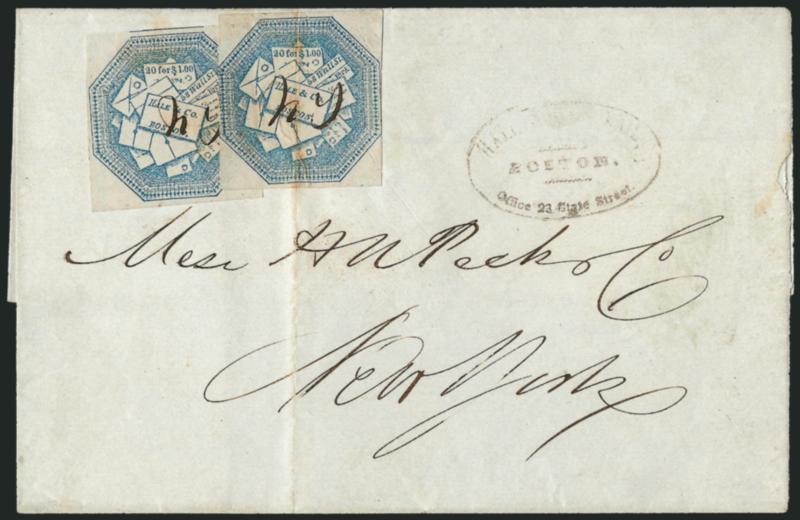 20 for $1.00
HALE & CO.
BOSTON
20 for $1.00
Wall St.
HALE & CO.
BOSTON
HALE
BOSTON.
Office 23 State Street.
Mess H N Peck & Co
New York